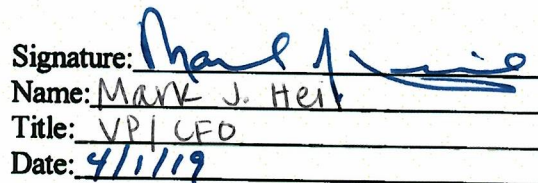 Signature:
Name: Mark J. Heil
Title: VP/CFO
Date: 4/1/19